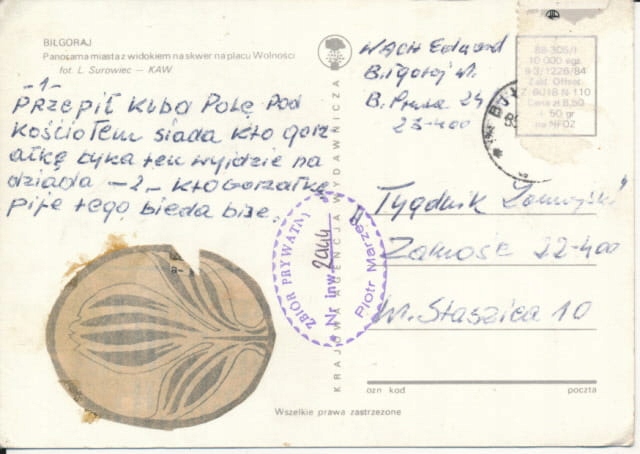 BIŁGORAJ
Panorama miasta z widokiem na skwer na placu Wolności
fot. L. Surowiec — KAW
-1-
PRZEPIŁ KUBA POLĘ POD
KOŚCIOŁEM siada KTO gorz-
ałkę łyka ten wyjdzie na
dziada -2- KTO GORZAŁKĘ
pije tego bieda bije.
WACH Edward
Biłgoraj
B. Prusa 24
23-400
88-305/1
10 000 egz.
Zakł. Offset.
Cena zł 8,50
+ 50 gr
na NFOZ
"Tygodnik Zamojski"
Zamość 22-400
Staszica 10
ZBIÓR PRYWATNY
Nr inw. 2944
Piotr
KRAJOWA AGENCJA WYDAWNICZA
ozn kod
poczta
Wszelkie prawa zastrzeżone